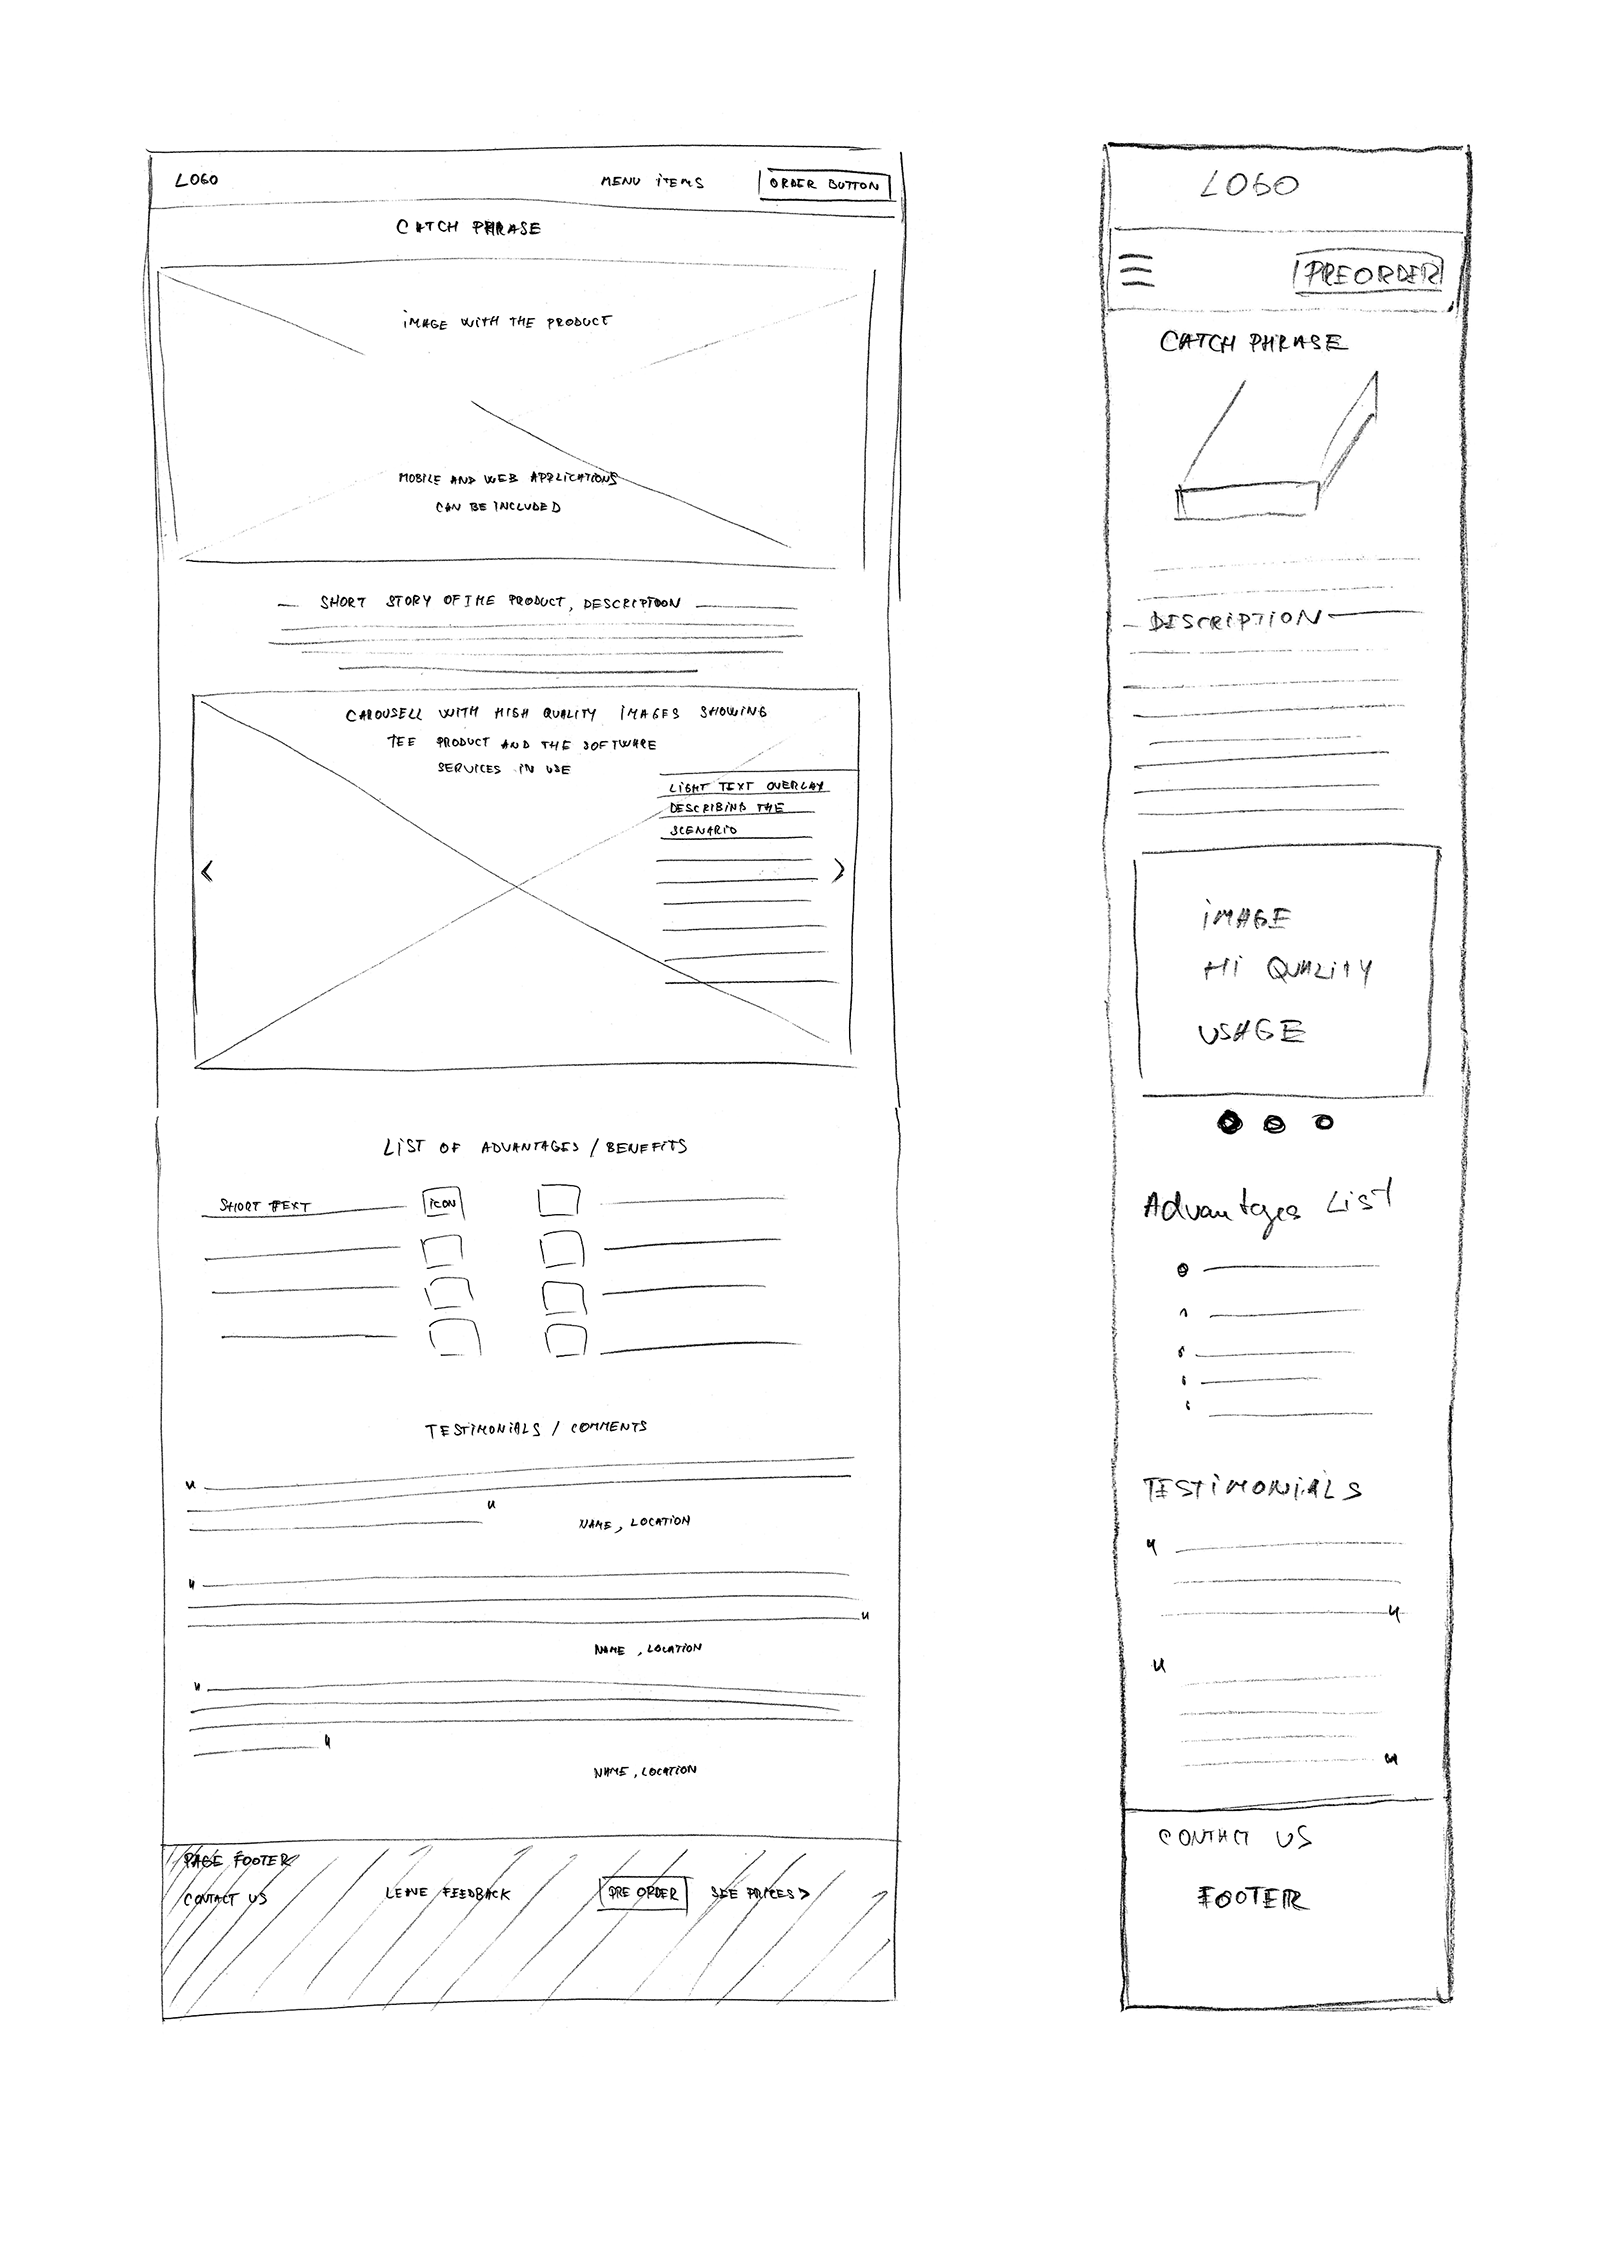 LOGO
MENU ITEMS
ORDER BUTTON
CATCH PHRASE
IMAGE WITH THE PRODUCT
MOBILE AND WEB APPLICATIONS
CAN BE INCLUDED
SHORT STORY OF THE PRODUCT, DESCRIPTION
CAROUSELL WITH HIGH QUALITY IMAGES SHOWING
TEE PRODUCT AND THE SOFTWARE
SERVICES IN USE
LIGHT TEXT OVERLAY
DESCRIBING THE
SCENARIO
<
>
LIST OF ADVANTAGES / BENEFITS
SHORT TEXT
ICON
TESTIMONIALS / COMMENTS
NAME, LOCATION
NAME, LOCATION
NAME, LOCATION
PAGE FOOTER
CONTACT US
LEAVE FEEDBACK
PRE ORDER
SEE PRICES >
LOGO
PREORDER
CATCH PHRASE
DESCRIPTION
IMAGE
HI QUALITY
USAGE
Advantages LIST
TESTIMONIALS
CONTACT US
FOOTER